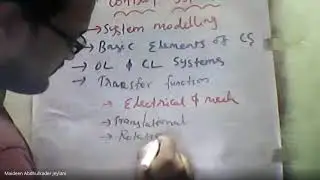 → System modelling
→ Basic Elements of CS
→ OL & CL Systems
→ Transfer function
→ Electrical & mech
→ Translational
→ Rotatio
Maideen Abdhulkader Jeylani